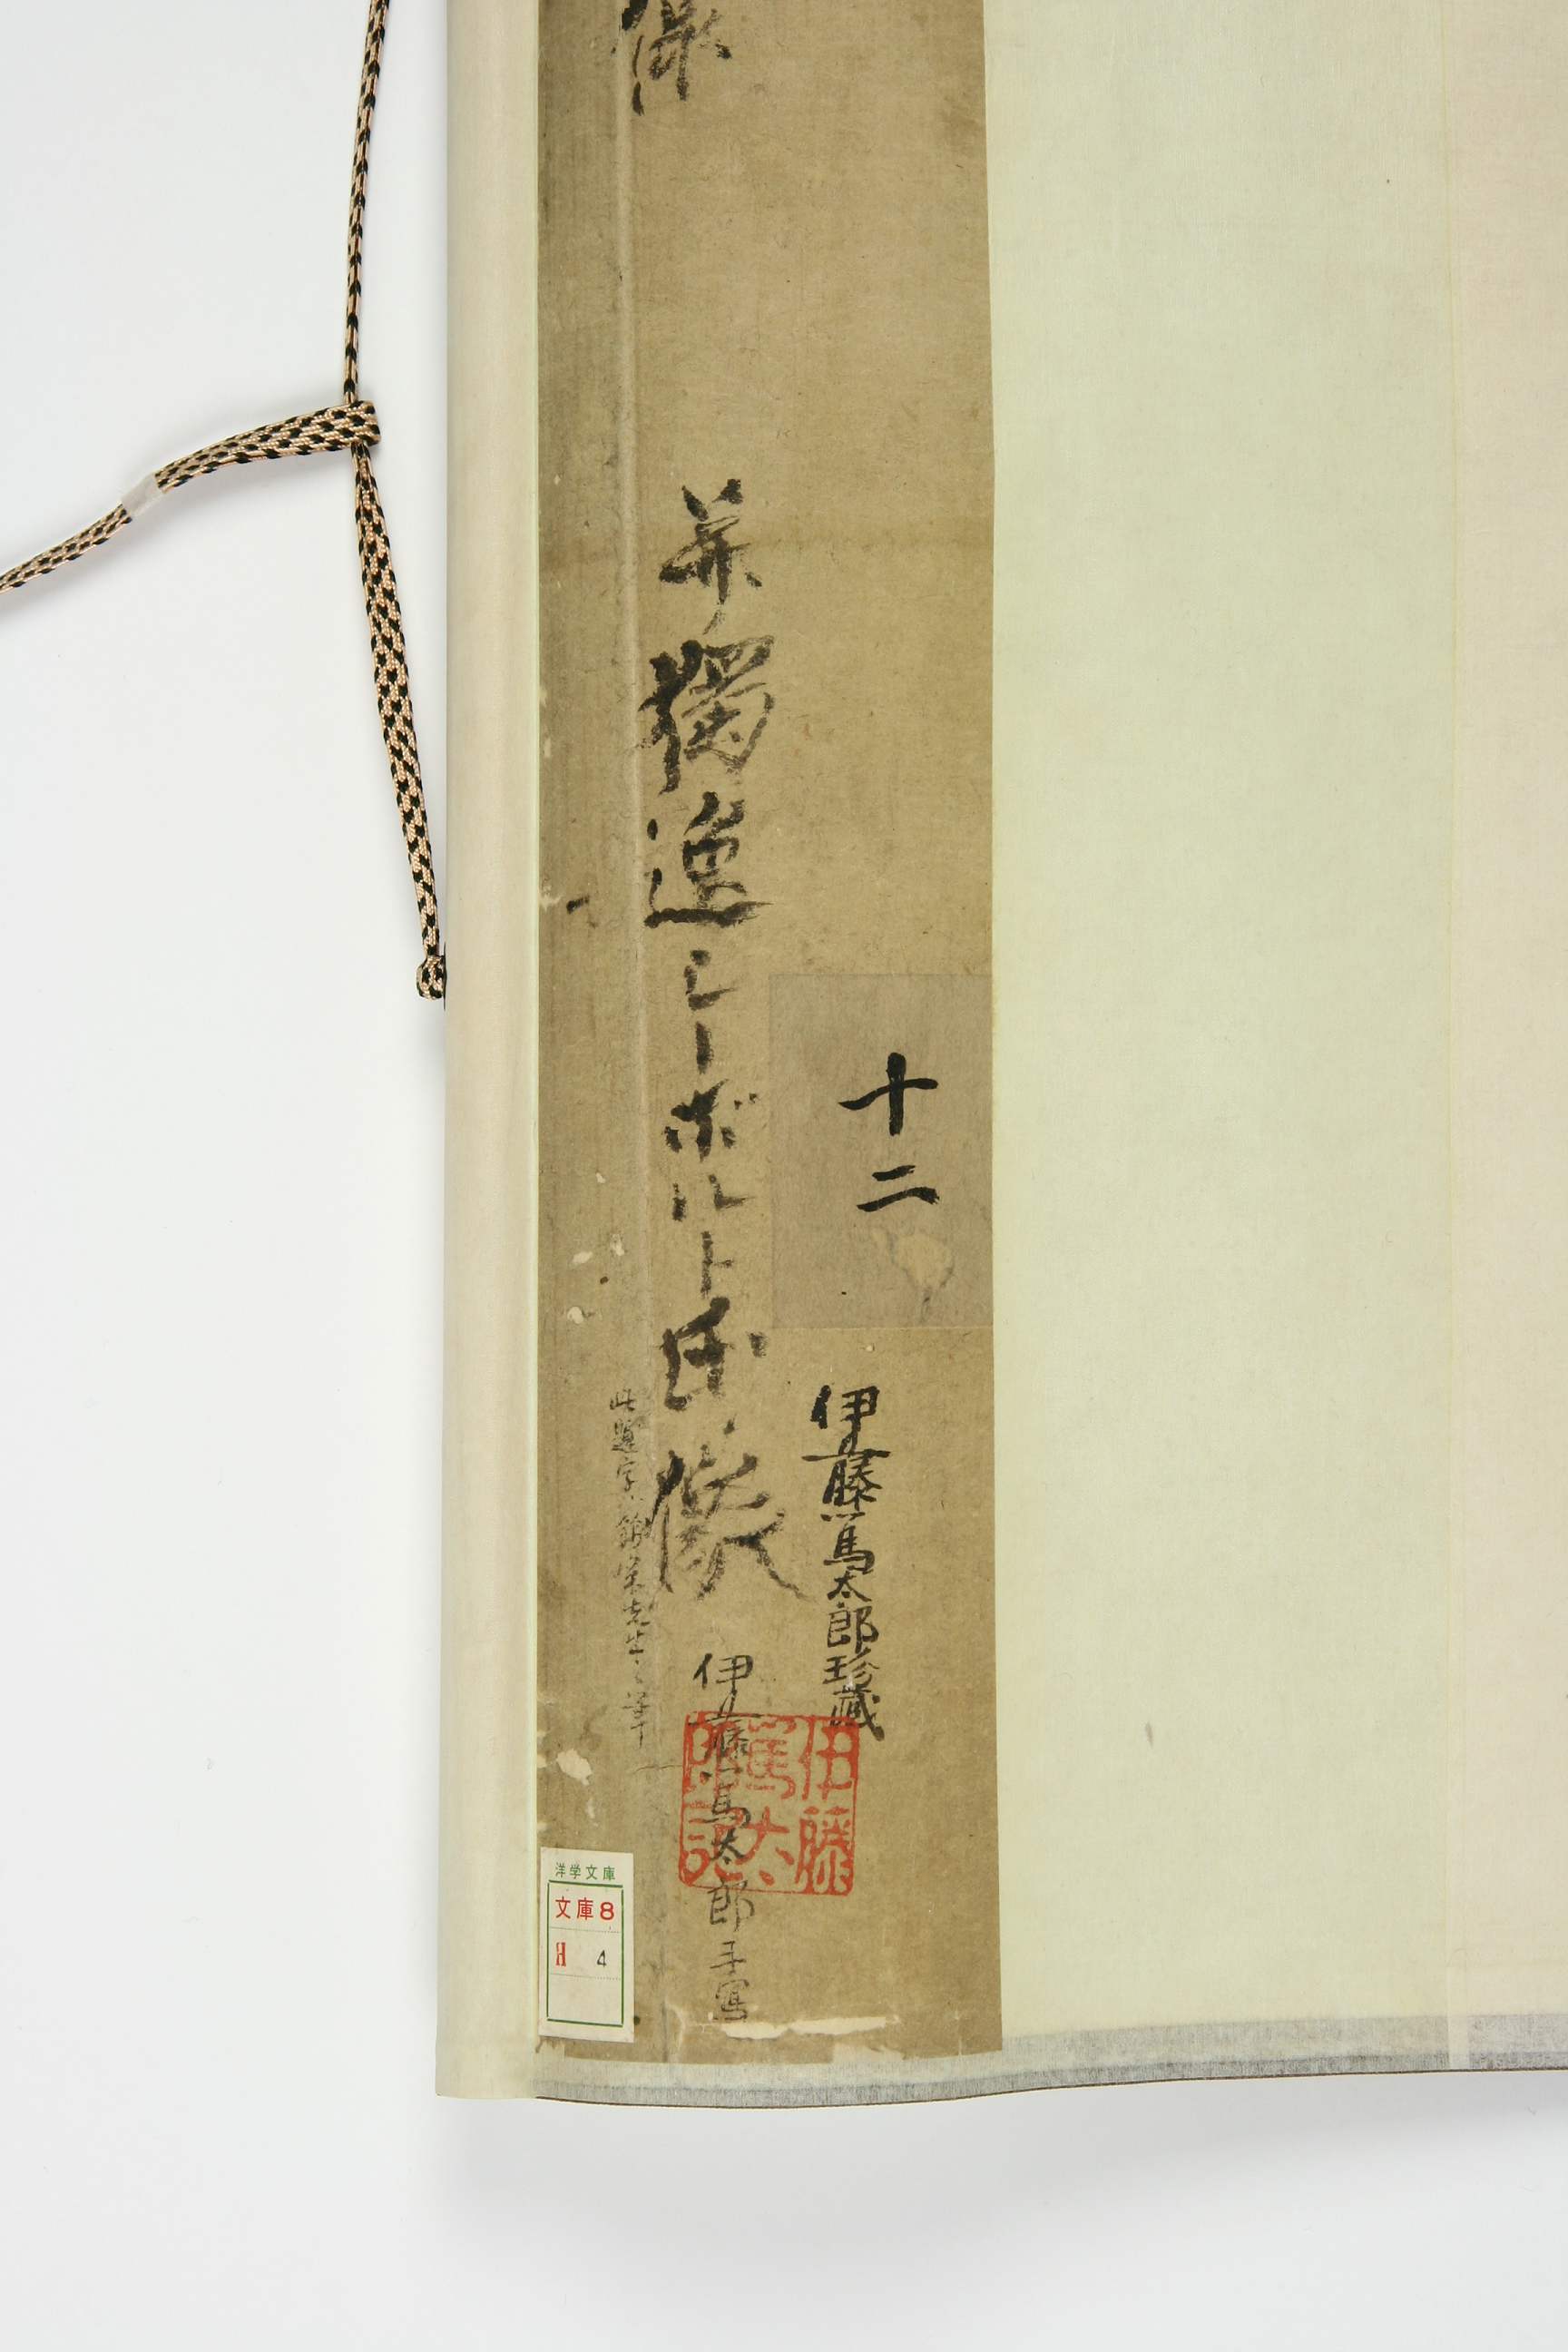 十二
伊藤篤太郎珍藏
像
并獨逸シーボルト氏像
伊藤篤太郎手寫
此題字錦窠先生之筆
伊藤
篤太
郎記
洋学文庫
文庫8
H 4